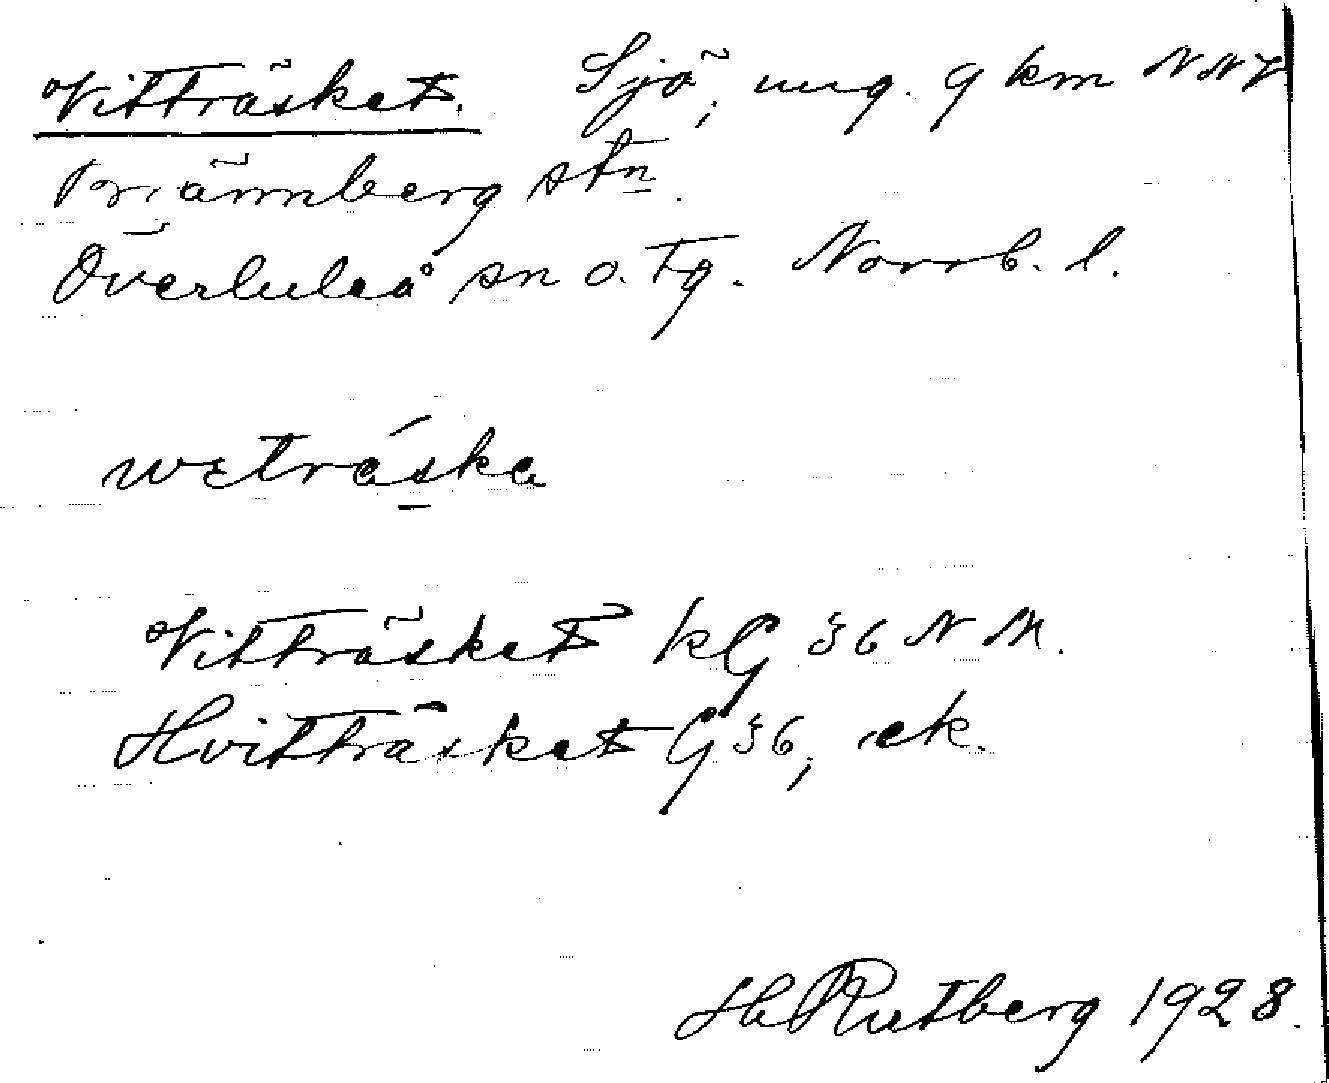 Vitträsket. Sjö, ung. 9 km NNV
Brännberg stn.
Överluleå sn o. tg. Norrb. l.
wetráska
Vitträsket kG 36 NM.
Hvitträsket G 36, ek.
H Rutberg 1928.